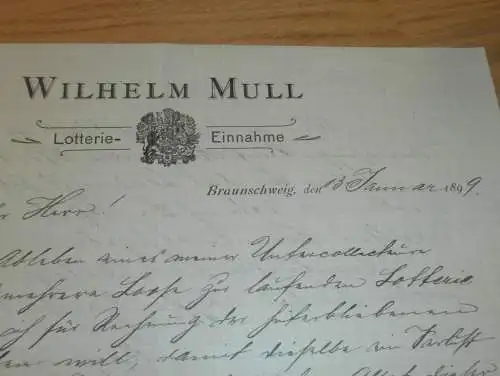 WILHELM MULL
Lotterie- Einnahme
Braunschweig, den 13 Januar 1899.
Herr!
Ableben eines meiner Untercollecteure
mehrere Loose zur laufenden Lotterie
ich für Rechnung der Hinterbliebenen
will, damit dieselbe ein Verlust